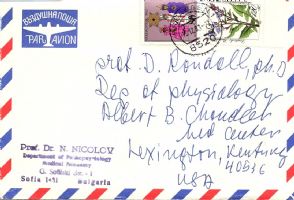 ВЪЗДУШНА ПОЩА
PAR AVION
prof. D. Randall, ph.D
Dep of physiology
Albert B. Chandler
med center
Lexington, Kentucky
40536
USA
Prof. Dr. N. NICOLOV
Department of
Medical Academy
G. Sofiiski
Sofia 1431 Bulgaria